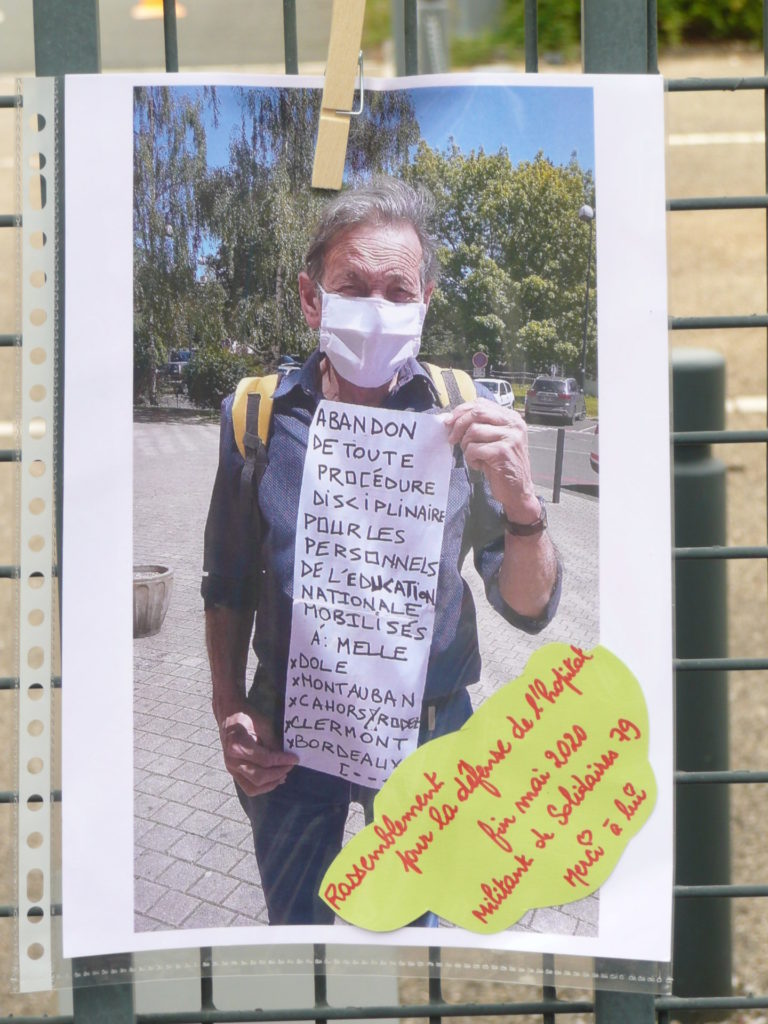 ABANDON
DE TOUTE
PROCÉDURE
DISCIPLINAIRE
POUR LES
PERSONNELS
DE L'EDUCATION
NATIONALE
MOBILISÉS
À: MELLE
xDOLE
xMONTAUBAN
xCAHORS/RODEZ
xCLERMONT
xBORDEAUX
[...
Rassemblement
pour la défense de l'hôpital
fin mai 2020
Militant de Solidaires 79
Merci à lui